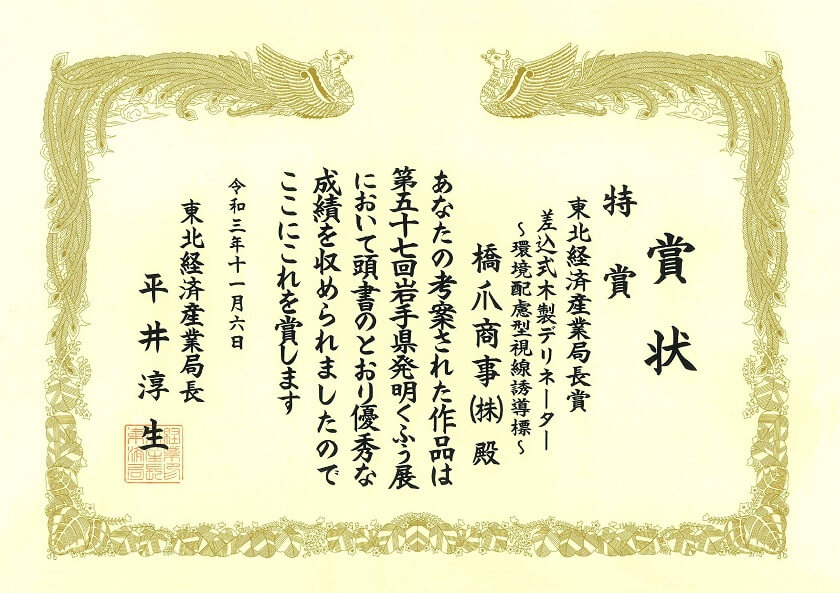 賞状
特賞
東北経済産業局長賞
差込式木製デリネーター
～環境配慮型視線誘導標～
橋爪商事㈱殿
あなたの考案された作品は
第五十七回岩手県発明くふう展
において頭書のとおり優秀な
成績を収められましたので
ここにこれを賞します
令和三年十一月六日
東北経済産業局長
平井淳生